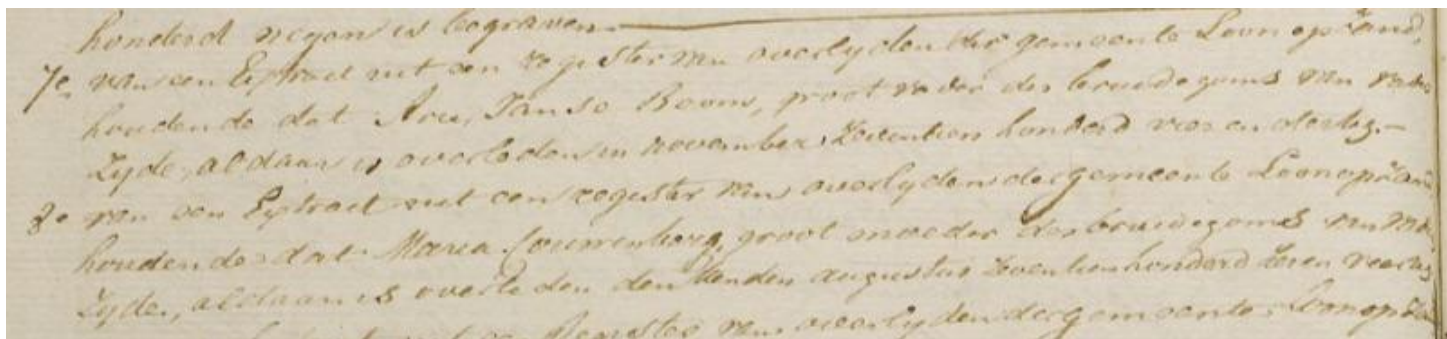 honderd negen is begraven.
7e. van een Extract uit een register van overlyden der gemeente Loonopzand,
houdende dat Jan so Boom, groot vader des bruidegoms van vaders
Zyde, aldaar is overleden in november Zeventien honderd vier en dertig.—
8e van een Extract uit een register van overlyden der gemeente Loonopzand
houdende dat Maria Couwenberg, groot moeder des bruidegoms van
Zyde, aldaar is overleden den tienden augustus Zeventienhonderd Zeven
Register van overlyden der gemeente Loonopzand